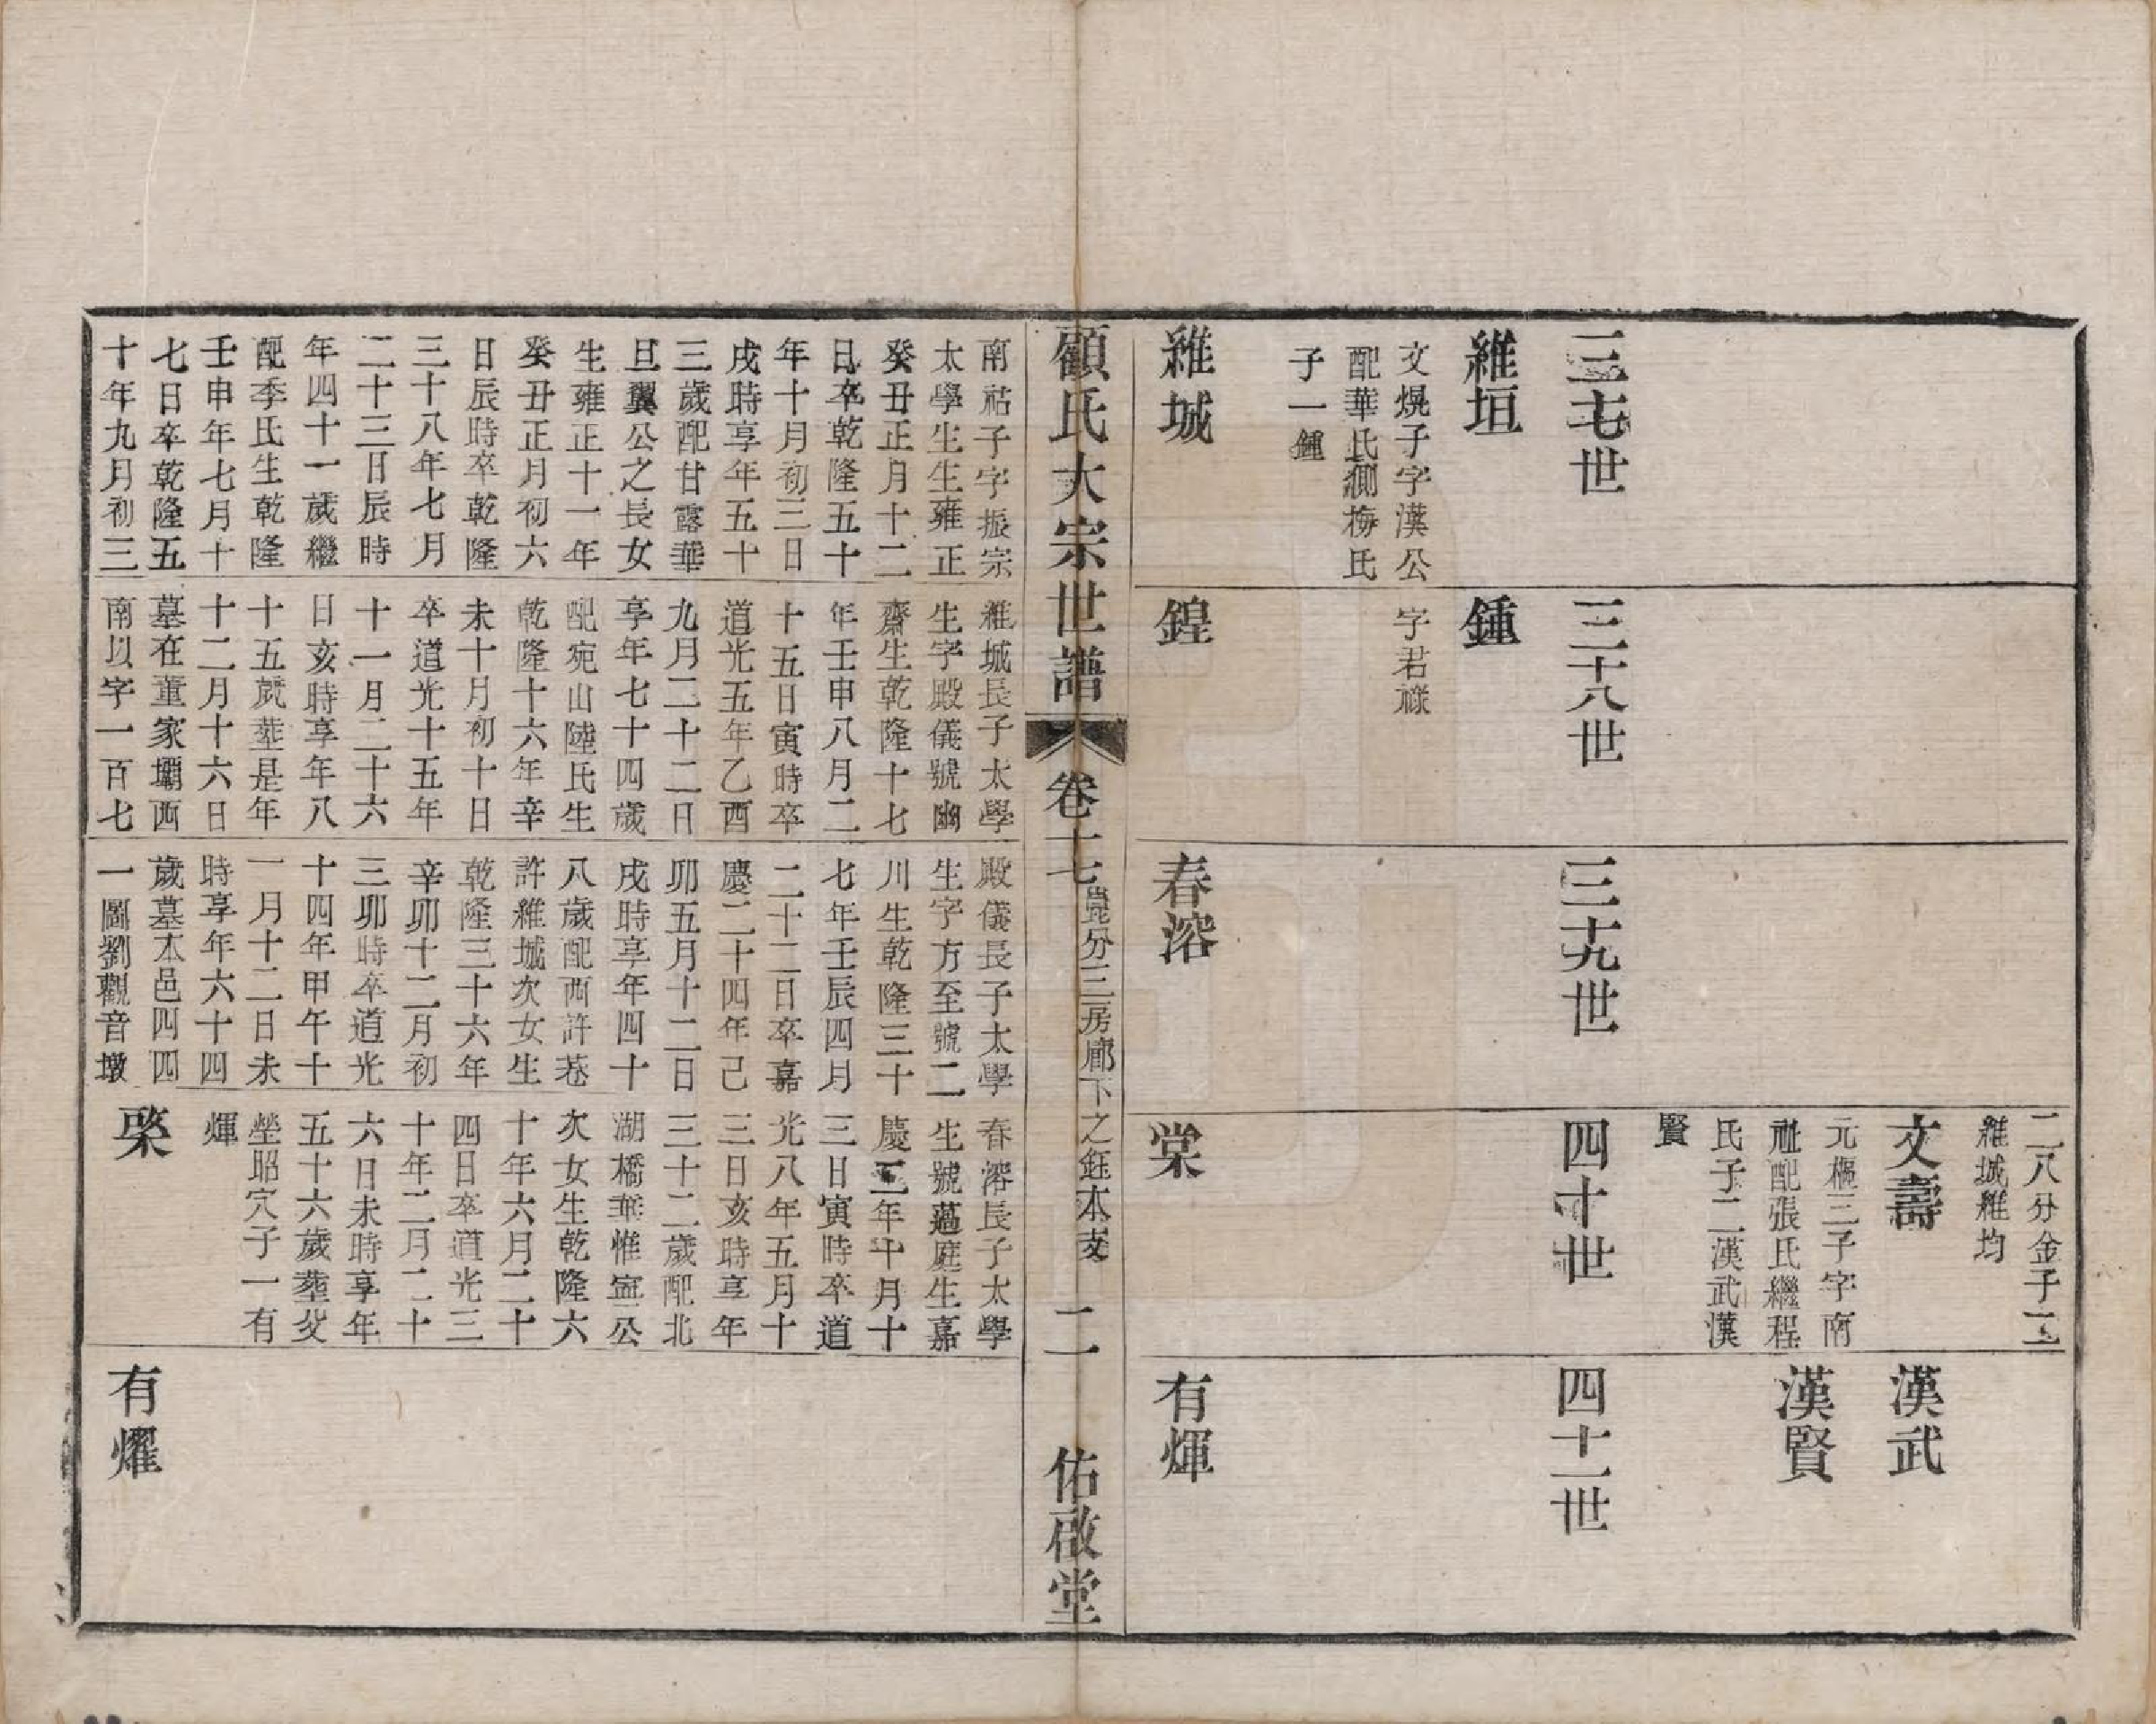 二八分金子二
維城維均
文壽
元樞三子字南
祉配張氏繼程
氏子二漢武漢
賢
漢武
漢賢
三十七世
三十八世
三十九世
四十世
四十一世
維垣
文熀子字漢公
配華氏側梅氏
子一鍾
鍾
字君祿
維城
鍠
春溶
棠
有煇
顧氏大宗世譜
卷十七
崑分三房廊下之鈺本支
二
佑啟堂
南祜子字振宗
太學生生雍正
癸丑正月十二
日卒乾隆五十
年十月初三日
戌時享年五十
三歲配甘露華
旦翼公之長女
生雍正十一年
癸丑正月初六
日辰時卒乾隆
三十八年七月
二十三日辰時
年四十一歲繼
配季氏生乾隆
壬申年七月十
七日卒乾隆五
十年九月初三
維城長子太學
生字殿儀號幽
齋生乾隆十七
年壬申八月二
十五日寅時卒
道光五年乙酉
九月二十二日
享年七十四歲
配宛山陸氏生
乾隆十六年辛
未十月初十日
卒道光十五年
十一月二十六
日亥時享年八
十五歲葬是年
十二月十六日
墓在董家壩西
南以字一百七
殿儀長子太學
生字方至號二
川生乾隆三十
七年壬辰四月
二十二日卒嘉
慶二十四年己
卯五月十二日
戌時享年四十
八歲配西許巷
許維城次女生
乾隆三十六年
辛卯十二月初
三卯時卒道光
十四年甲午十
一月十二日未
時享年六十四
歲墓本邑四四
一圖劉觀音墩
春溶長子太學
生號蔼庭生嘉
慶三年十月十
三日寅時卒道
光八年五月十
三日亥時享年
三十二歲配北
湖橋華惟寧公
次女生乾隆六
十年六月二十
四日卒道光三
十年二月二十
六日未時享年
五十六歲葬父
塋昭穴子一有
煇
棨
有燿